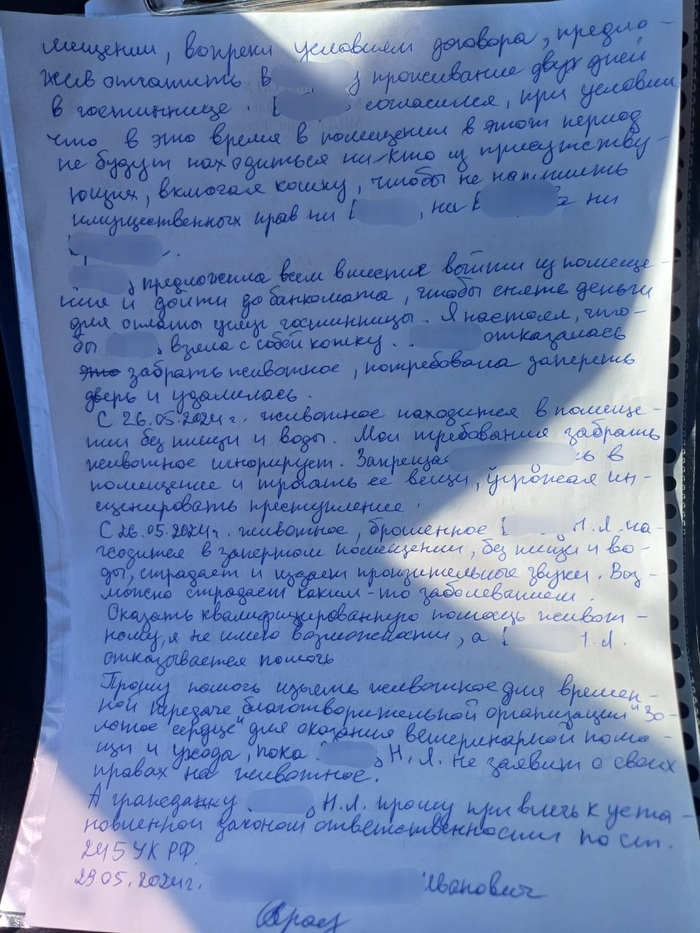 мещении, вопреки условиям договора, предло-
жив оплатить В проживание двух дней
в гостиннице. согласился, при условии
что в это время в помещении в этот период
не будут находиться ни-кто из присутству-
ющих, включая кошку, чтобы не нарушить
имущественных прав ни , на ни
предложила всем вместе выйти из помеще-
ния и дойти до банкомата, чтобы снять деньги
для оплаты услуг гостинницы. Я настоял, что-
бы взяла с собой кошку. отказалась
это забрать животное, потребовала запереть
дверь и удалилась.
С 26.05.2024г. животное находится в помеще-
нии без пищи и воды. Мои требования забрать
животное игнорирует. Запрещая в
помещение и трогать ее вещи, угрожая ин-
сценировать преступление.
С 26.05.2024г. животное, брошенное Н.Л. на-
ходится в запертом помещении, без пищи и во-
ды, страдает и издает пронзительные звуки. Воз-
можно страдает каким-то заболеванием.
Оказать квалифицированную помощь живот-
ному, я не имею возможности, а Л.
отказывается помочь
Прошу помочь изъять животное для времен-
ной передаче благотворительной организации "Зо-
лотое сердце" для оказания ветеринарной помо-
щи и ухода, пока Н.Л. не заявит о своих
правах на животное.
А гражданку Н.Л. прошу привлечь к уста-
новленной законом ответственности по ст.
245 УК РФ.
29.05.2024г. Иванович